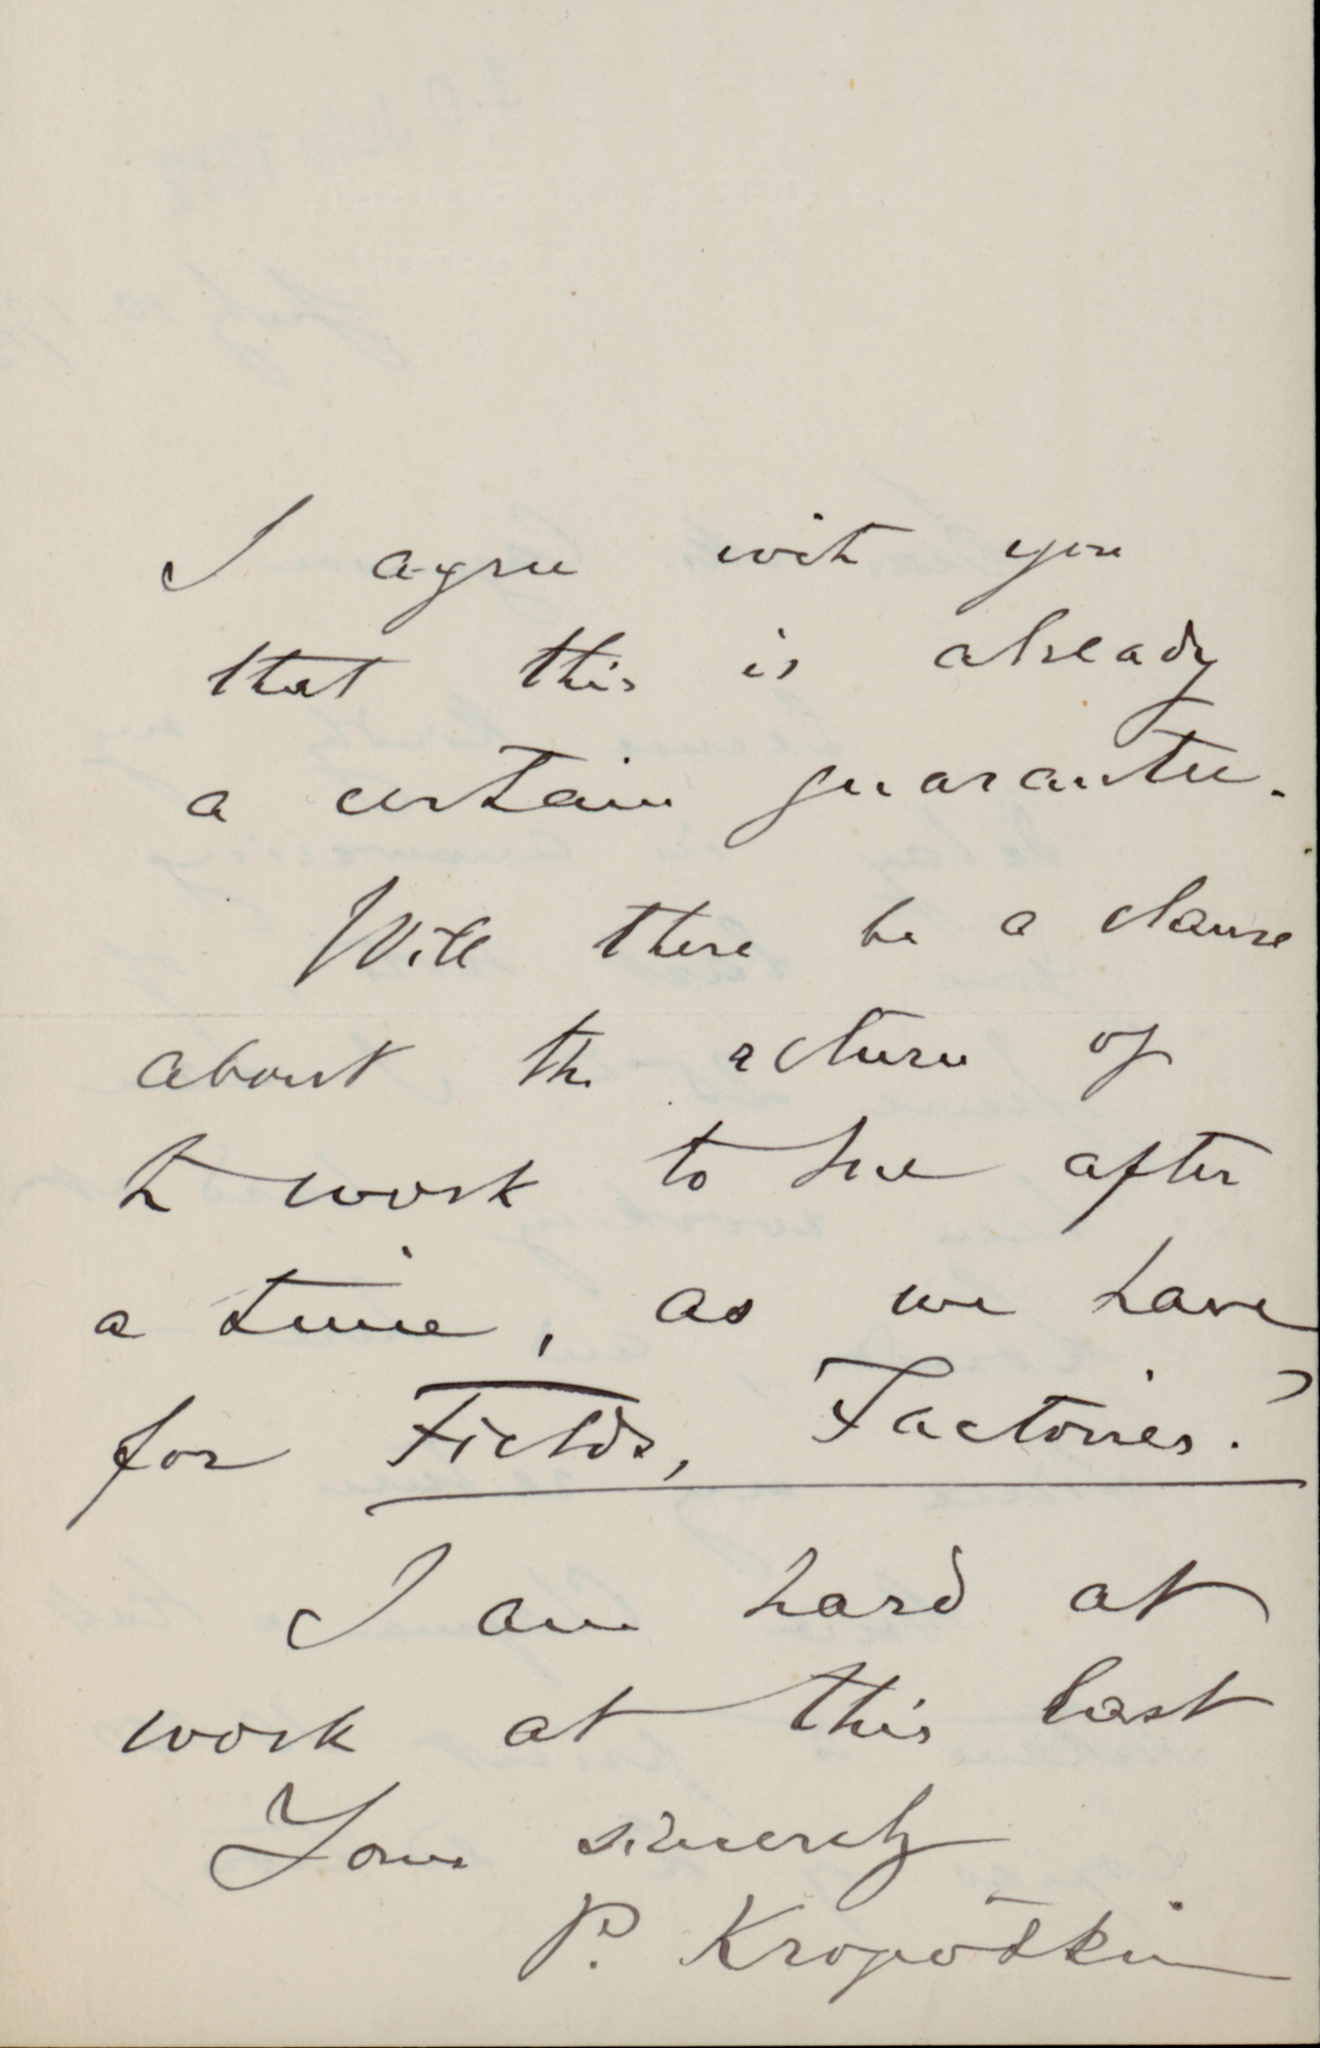 I agree with you
that this is already
a certain guarantee.
Will there be a clause
about the return of
the work to me after
a time, as we have
for Fields, Factories?
I am hard at
work at this last
Yours sincerely
P. Kropotkin